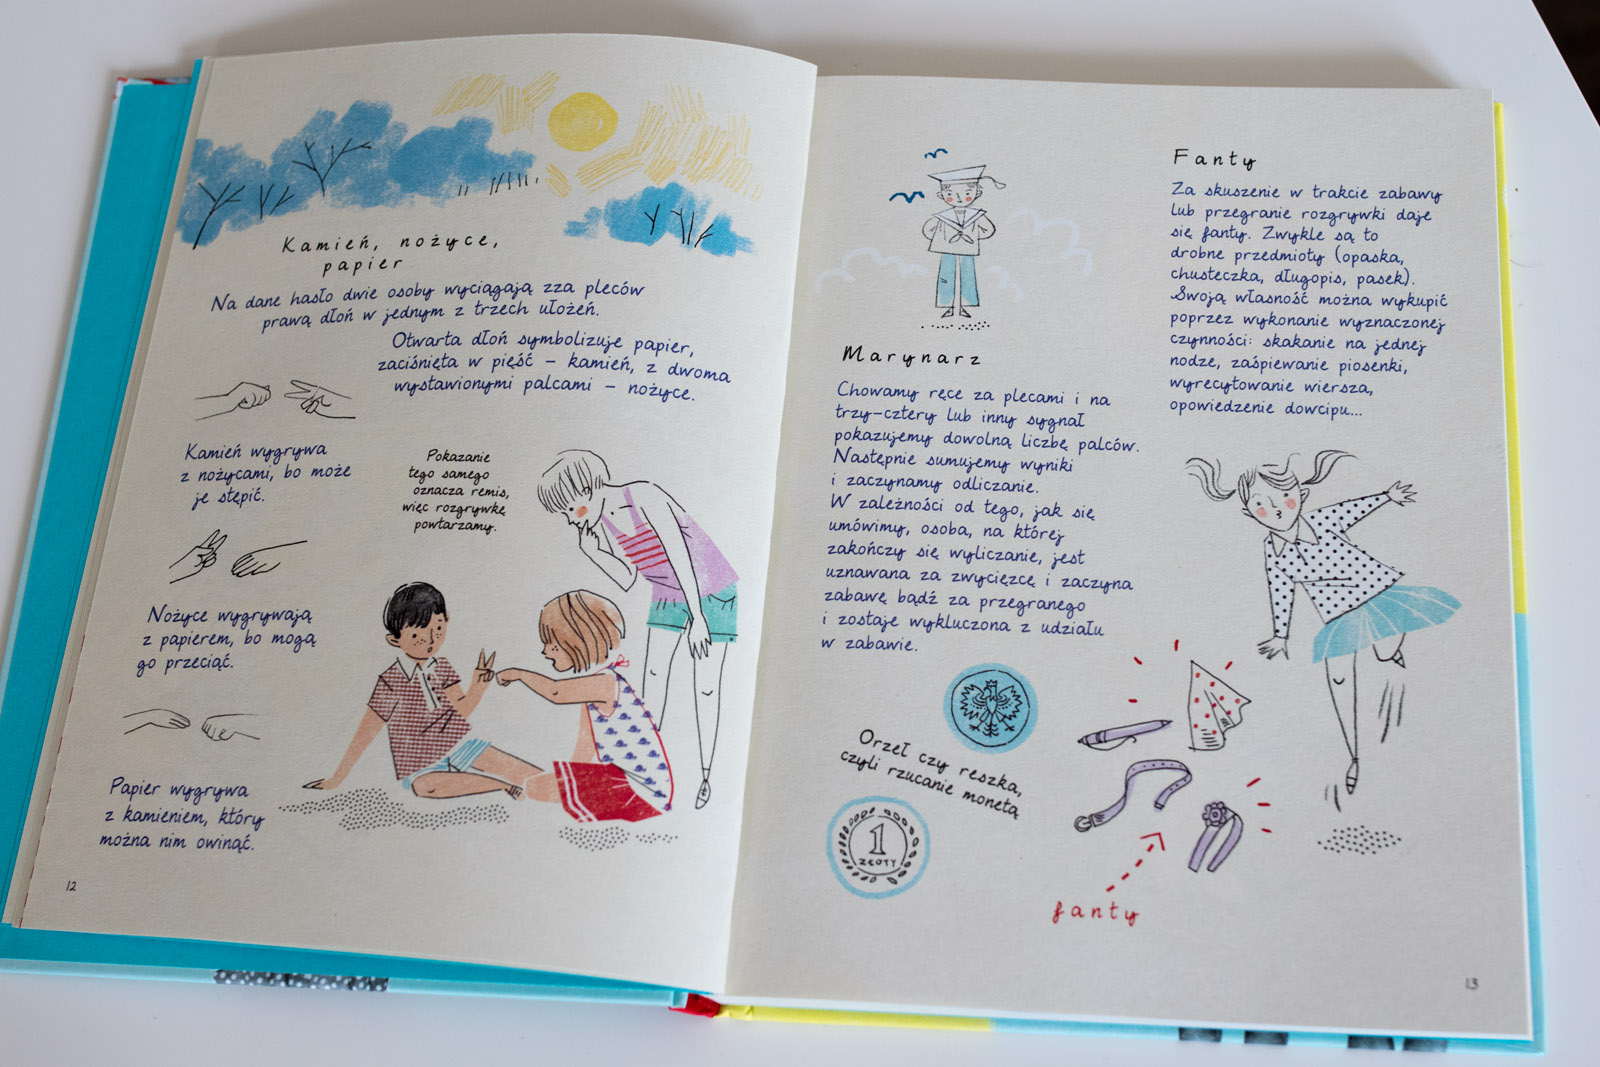 Kamień, nożyce,
papier
Na dane hasło dwie osoby wyciągają zza pleców
prawą dłoń w jednym z trzech ułożeń.
Otwarta dłoń symbolizuje papier,
zaciśnięta w pięść – kamień, z dwoma
wystawionymi palcami – nożyce.
Kamień wygrywa
z nożycami, bo może
je stępić.
Pokazanie
tego samego
oznacza remis,
więc rozgrywkę
powtarzamy.
Nożyce wygrywają
z papierem, bo mogą
go przeciąć.
Papier wygrywa
z kamieniem, który
można nim owinąć.
12
Marynarz
Chowamy ręce za plecami i na
trzy-cztery lub inny sygnał
pokazujemy dowolną liczbę palców.
Następnie sumujemy wyniki
i zaczynamy odliczanie.
W zależności od tego, jak się
umówimy, osoba, na której
zakończy się wyliczanie, jest
uznawana za zwycięzcę i zaczyna
zabawę bądź za przegranego
i zostaje wykluczona z udziału
w zabawie.
Orzeł czy reszka,
czyli rzucanie monetą
1
ZŁOTY
Fanty
Za skuszenie w trakcie zabawy
lub przegranie rozgrywki daje
się fanty. Zwykle są to
drobne przedmioty (opaska,
chusteczka, długopis, pasek).
Swoją własność można wykupić
poprzez wykonanie wyznaczonej
czynności: skakanie na jednej
nodze, zaśpiewanie piosenki,
wyrecytowanie wiersza,
opowiedzenie dowcipu...
fanty
13